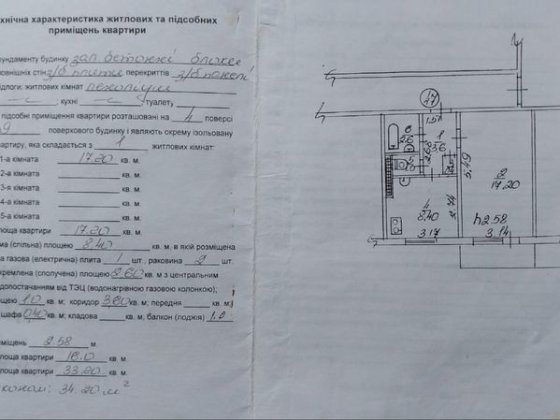 хнічна характеристика житлових та підсобних
приміщень квартири
ундаменту будинку зал. бетонні блоки
овнішніх стін з/б плити перекриттів з/б панелі
ідлоги: житлових кімнат лінолеум
; кухні — туалету
підсобні приміщення квартири розташовані на 4 поверсі
9 поверхового будинку і являють окрему ізольовану
вартиру, яка складається з 1 житлових кімнат:
1-а кімната 17.20 кв. м.
2-а кімната кв. м.
3-я кімната кв. м.
4-а кімната кв. м.
5-а кімната кв. м.
лоща квартири 17.20 кв. м.
на (спільна) площею 8.40 кв. м, в якій розміщена
а газова (електрична) плита 1 шт., раковина 2 шт.
кремлена (сполучена) площею 2.60 кв. м з центральним
одопостачанням від ТЭЦ (водонагрівною газовою колонкою);
ощею 1.0 кв. м; коридор 3.60 кв. м; передня кв. м;
шафа 0.40 кв. м; кладова кв. м, балкон (лоджія) 1.0
міщень 2.58 м.
лоща квартири 16.0 кв. м.
лоща квартири 33.20 кв. м.
34.20 м²
47
1.57
6
2.6
1
3.6
5
2.68
5.49
2
17.20
4
8.40
2.74
h 2.58
3.17
3.14